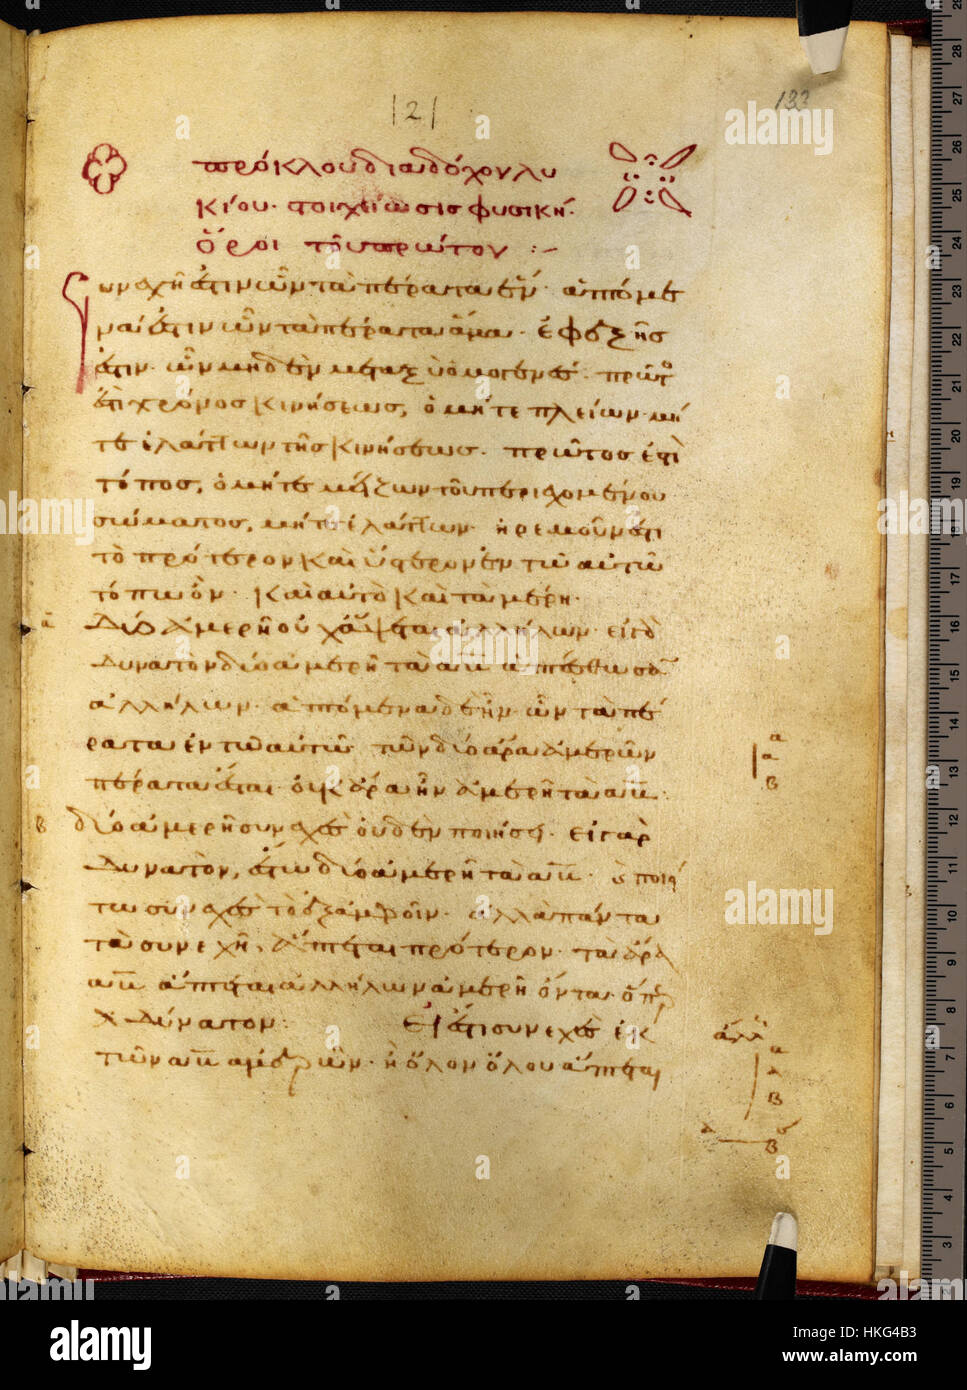 121
133
πρόκλου διαδόχου λυ
κίου· στοιχείωσις φυσική·
ὅροι τοῦ πρώτου :–
Συνεχῆ ἐστιν ὧν τὰ πέρατα ἕν· ἁπτόμε
να ἐστιν ὧν τὰ πέρατα ἅμα· ἐφεξῆς
ἐστιν· ὧν μηδὲν μεταξὺ ὁμογενές· πρῶτος
ἐστι χρόνος κινήσεως, ὁ μήτε πλείων μή
τε ἐλάττων τῆς κινήσεως· πρῶτος ἐστὶ
τόπος, ὁ μήτε μείζων τοῦ περιεχομένου
σώματος, μήτε ἐλάττων· ἠρεμοῦν ἐστι
τὸ πρότερον καὶ ὕστερον ἐν τῶ αὐτῶ
τόπω ὂν· καὶ αὐτὸ καὶ τὰ μέρη·
α
Δύο ἀμερῆ οὐχ ἅψεται ἀλλήλων· εἰ
δυνατὸν δύο ἀμερῆ τὰ αβ ἁπτέσθωσαν
ἀλλήλων· ἁπτόμενα δὲ ἦν· ὧν τὰ πέ
ρατα ἐν τῶ αὐτῶ· τῶν δύο ἄρα ἀμερῶν
πέρατα ἔσται· οὐκ ἄρα ἦν ἀμερῆ τὰ αβ·
β
δύο ἀμερῆ συνεχὲς οὐδὲν ποιήσει· εἰ γὰρ
δυνατὸν, ἔστω δύο ἀμερῆ τὰ αβ· ποιεί
τω συνεχὲς τὸ ἐξ ἀμφοῖν· ἀλλὰ πάντα
τὰ συνεχῆ, ἅπτεται πρότερον· τὰ ἄρα
αβ ἅπτεται ἀλλήλων ἀμερῆ ὄντα· ὅπερ
ἀδύνατον: Εἰ ἔστι συνεχὲς ἐκ
τῶν αβ ἀμερῶν· ἢ ὅλον ὅλου ἅπτεται
α
β
ἄλλ
α
β
β
alamy
Image ID: HKG4B3
www.alamy.com